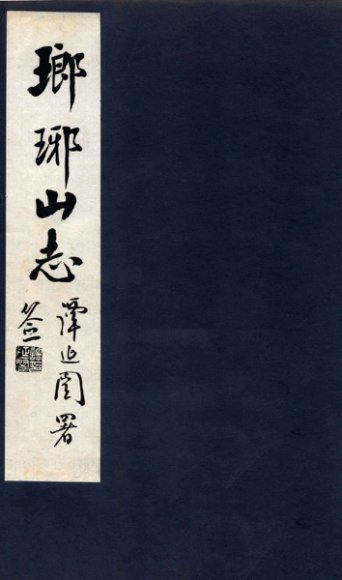 瑯琊山志
署
签